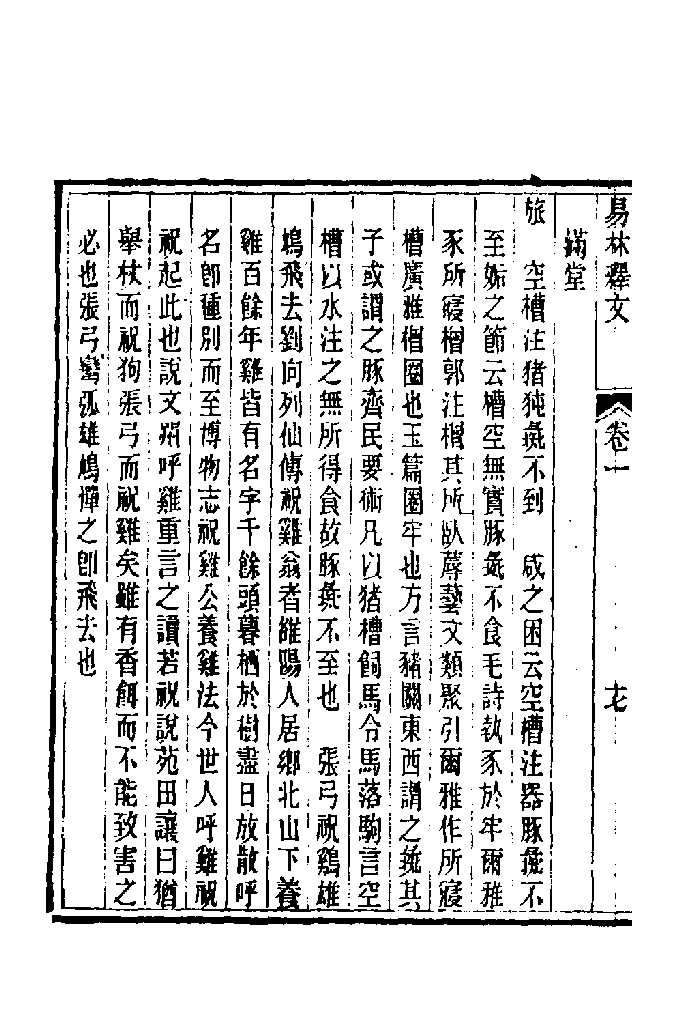 易林釋文 卷一 十七
滿堂
旅 空槽注猪㹠彘不到 咸之困云空槽注器豚彘不
至姤之節云槽空無實豚彘不食毛詩執豕於牢爾雅
豕所寢橧郭注橧其所臥蓐藝文類聚引爾雅作所寢
槽廣雅橧圈也玉篇圈牢也方言豬關東西謂之彘其
子或謂之豚齊民要術凡以猪槽飼馬令馬落駒言空
槽以水注之無所得食故豚彘不至也 張弓祝鷄雄
鳩飛去劉向列仙傳祝雞翁者雒陽人居鄉北山下養
雞百餘年雞皆有名字千餘頭暮栖於樹晝日放散呼
名卽種別而至博物志祝雞公養雞法今世人呼雞祝
祝起此也說文喌呼雞重言之讀若祝說苑田讓曰猶
舉杖而祝狗張弓而祝雞矣雖有香餌而不能致害之
必也張弓彎弧雄鳩憚之卽飛去也